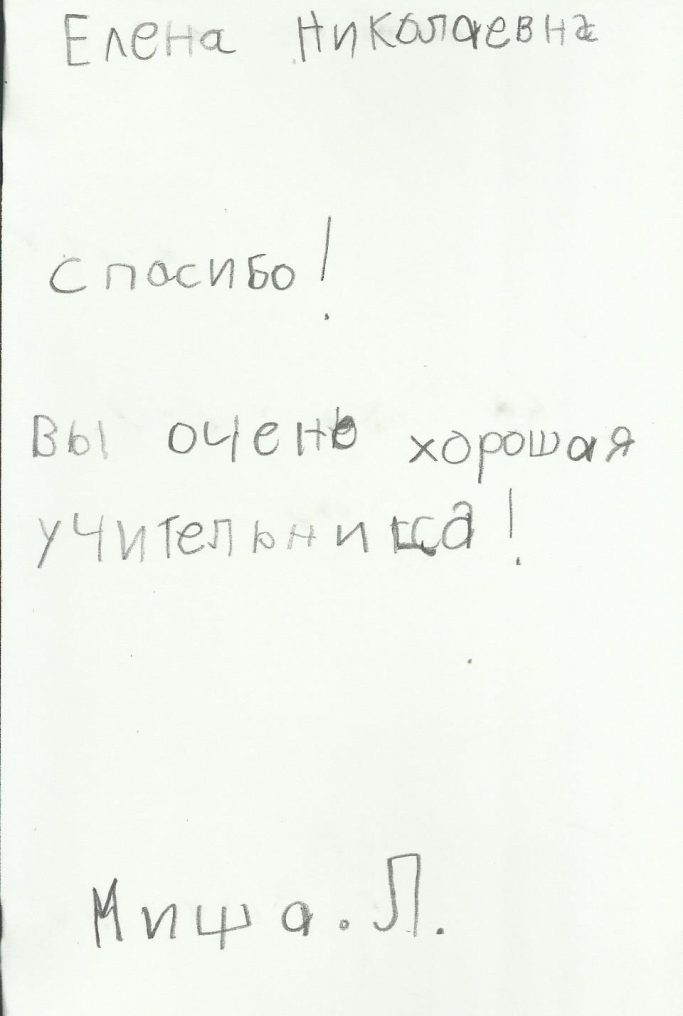 Елена Николаевна
спасибо!
Вы очень хорошая
учительница!
Миша. Л.